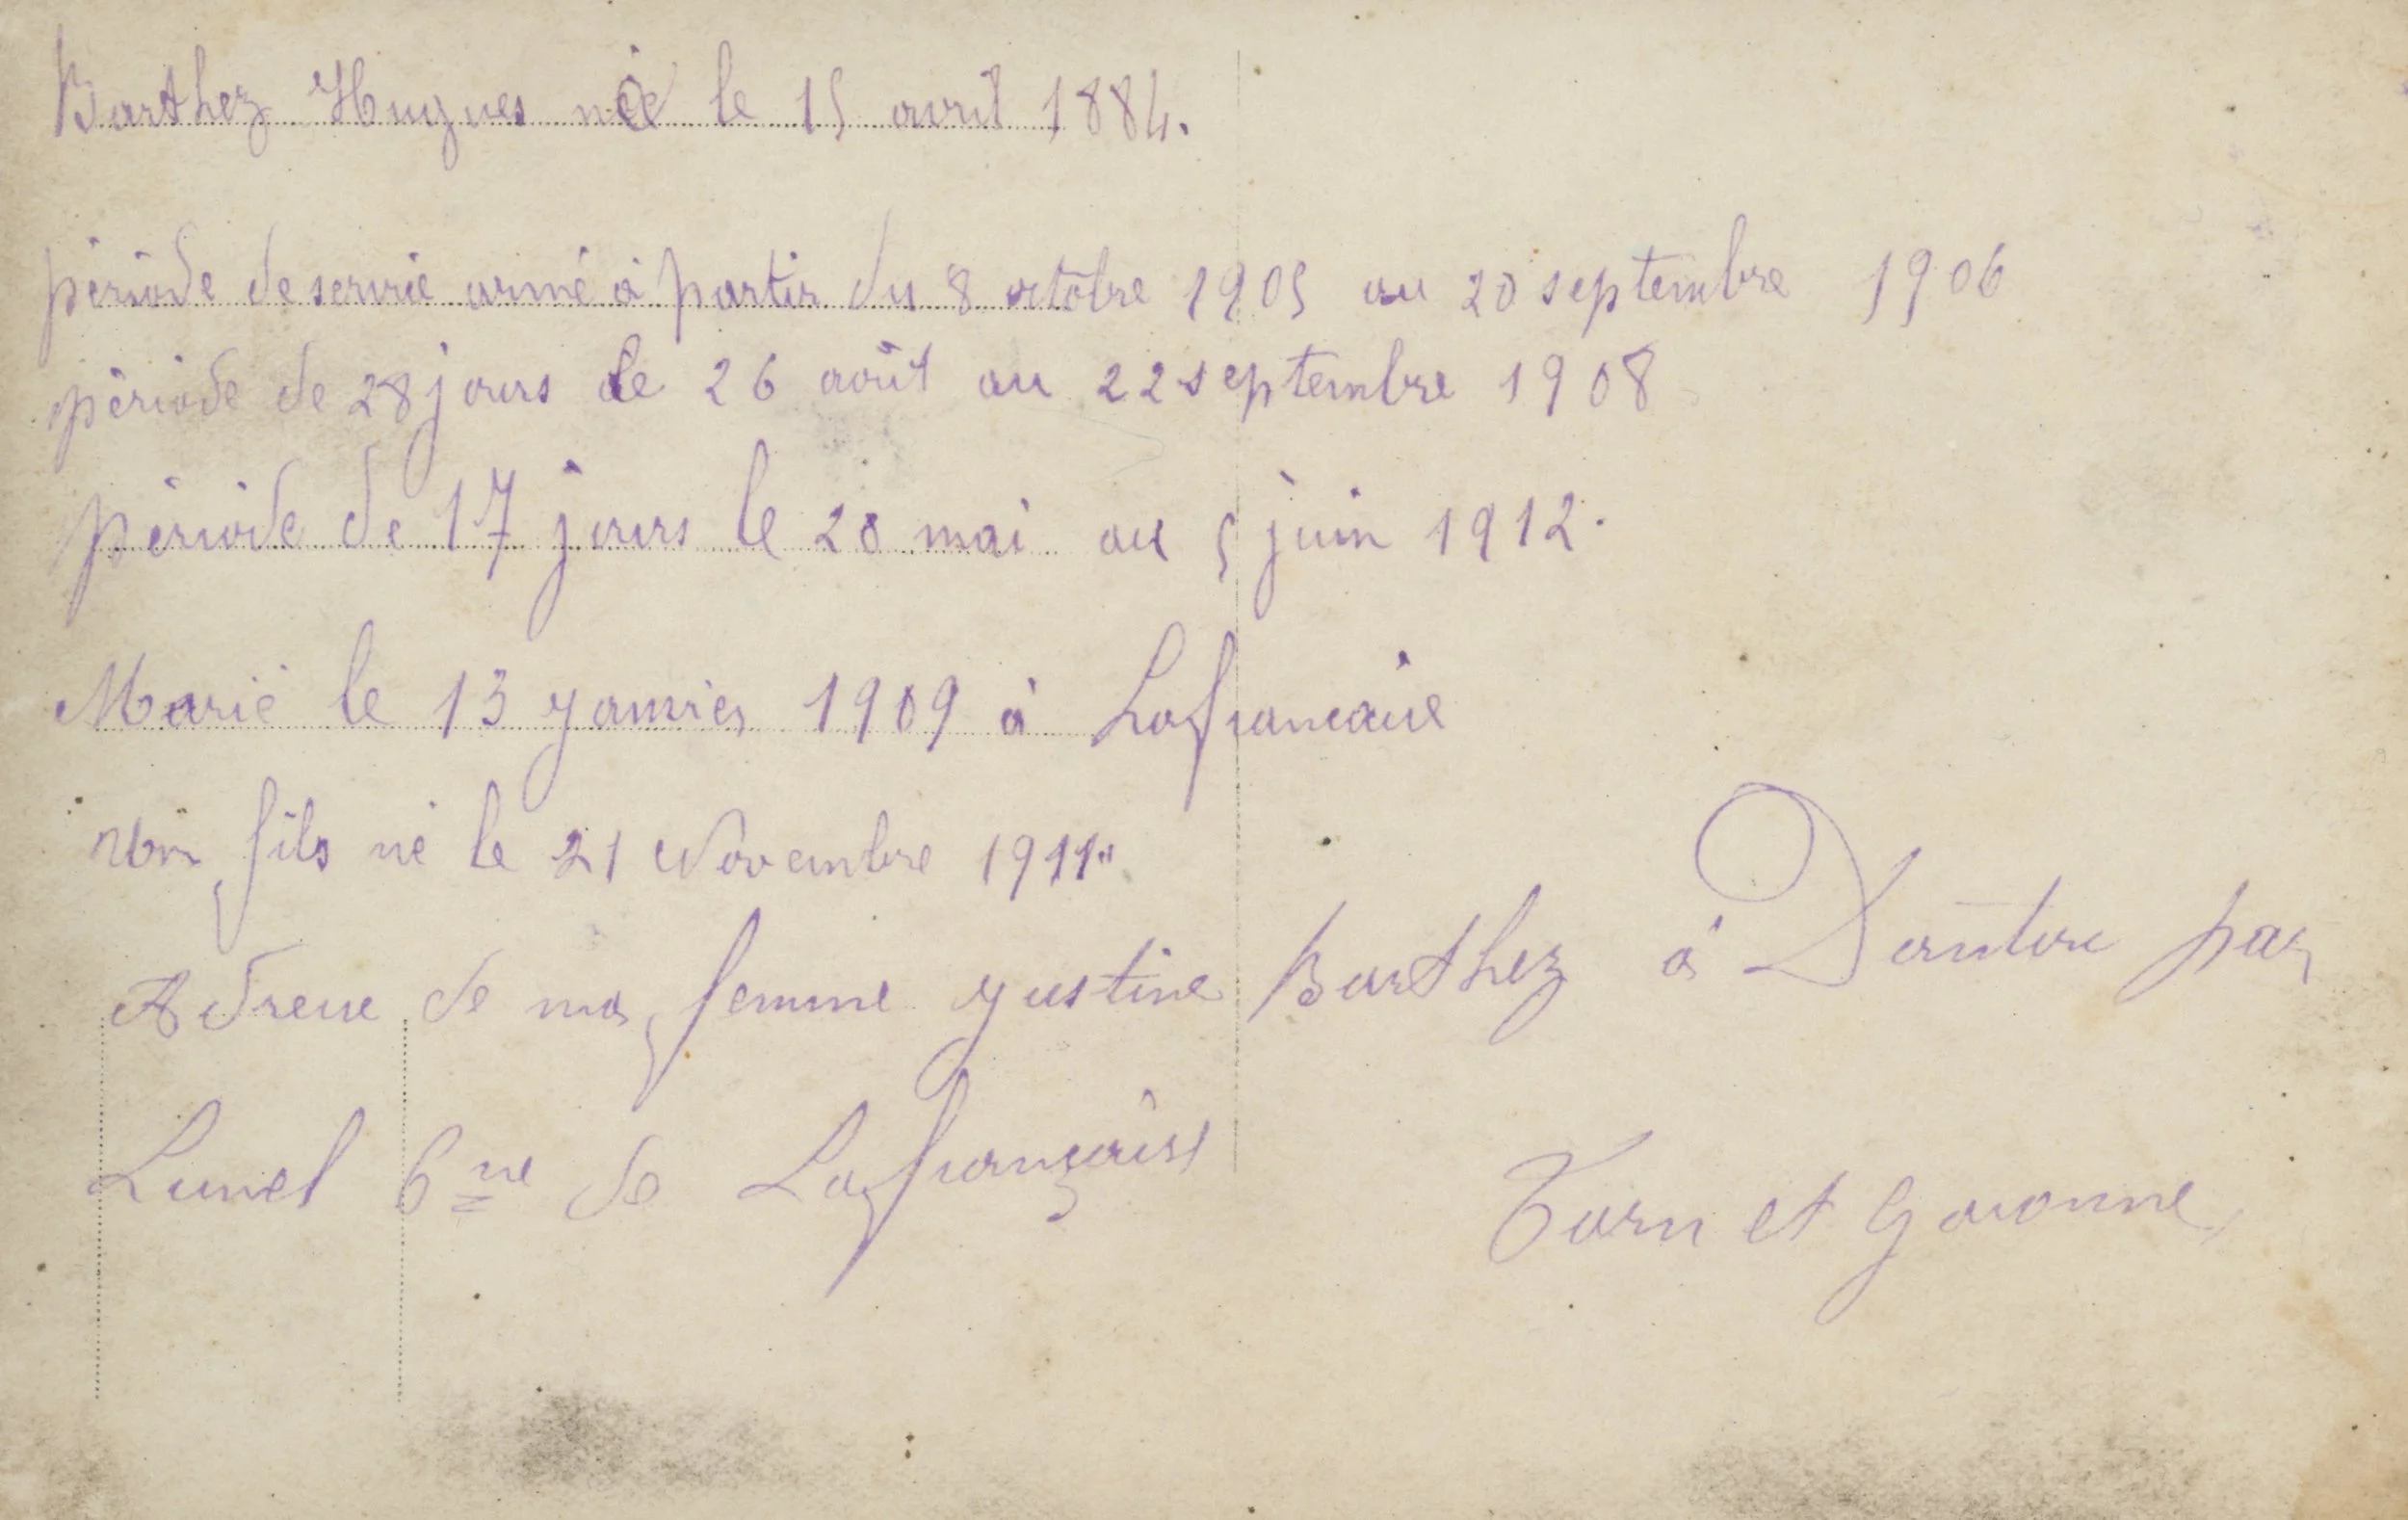 Barthez Hugues né le 15 avril 1884.
période de servie armé à partir du 8 octobre 1905 au 20 septembre 1906
période de 28 jours de 26 août au 22 septembre 1908
période de 17 jours le 20 mai au 5 juin 1912.
Marié le 13 yanvier 1909 à Lafrancaise
Mon fils né le 21 Novembre 1911
Adresse de ma femme yustine Barthez à par
Lunel Cne de Lafrançaise Tarn et Garonne